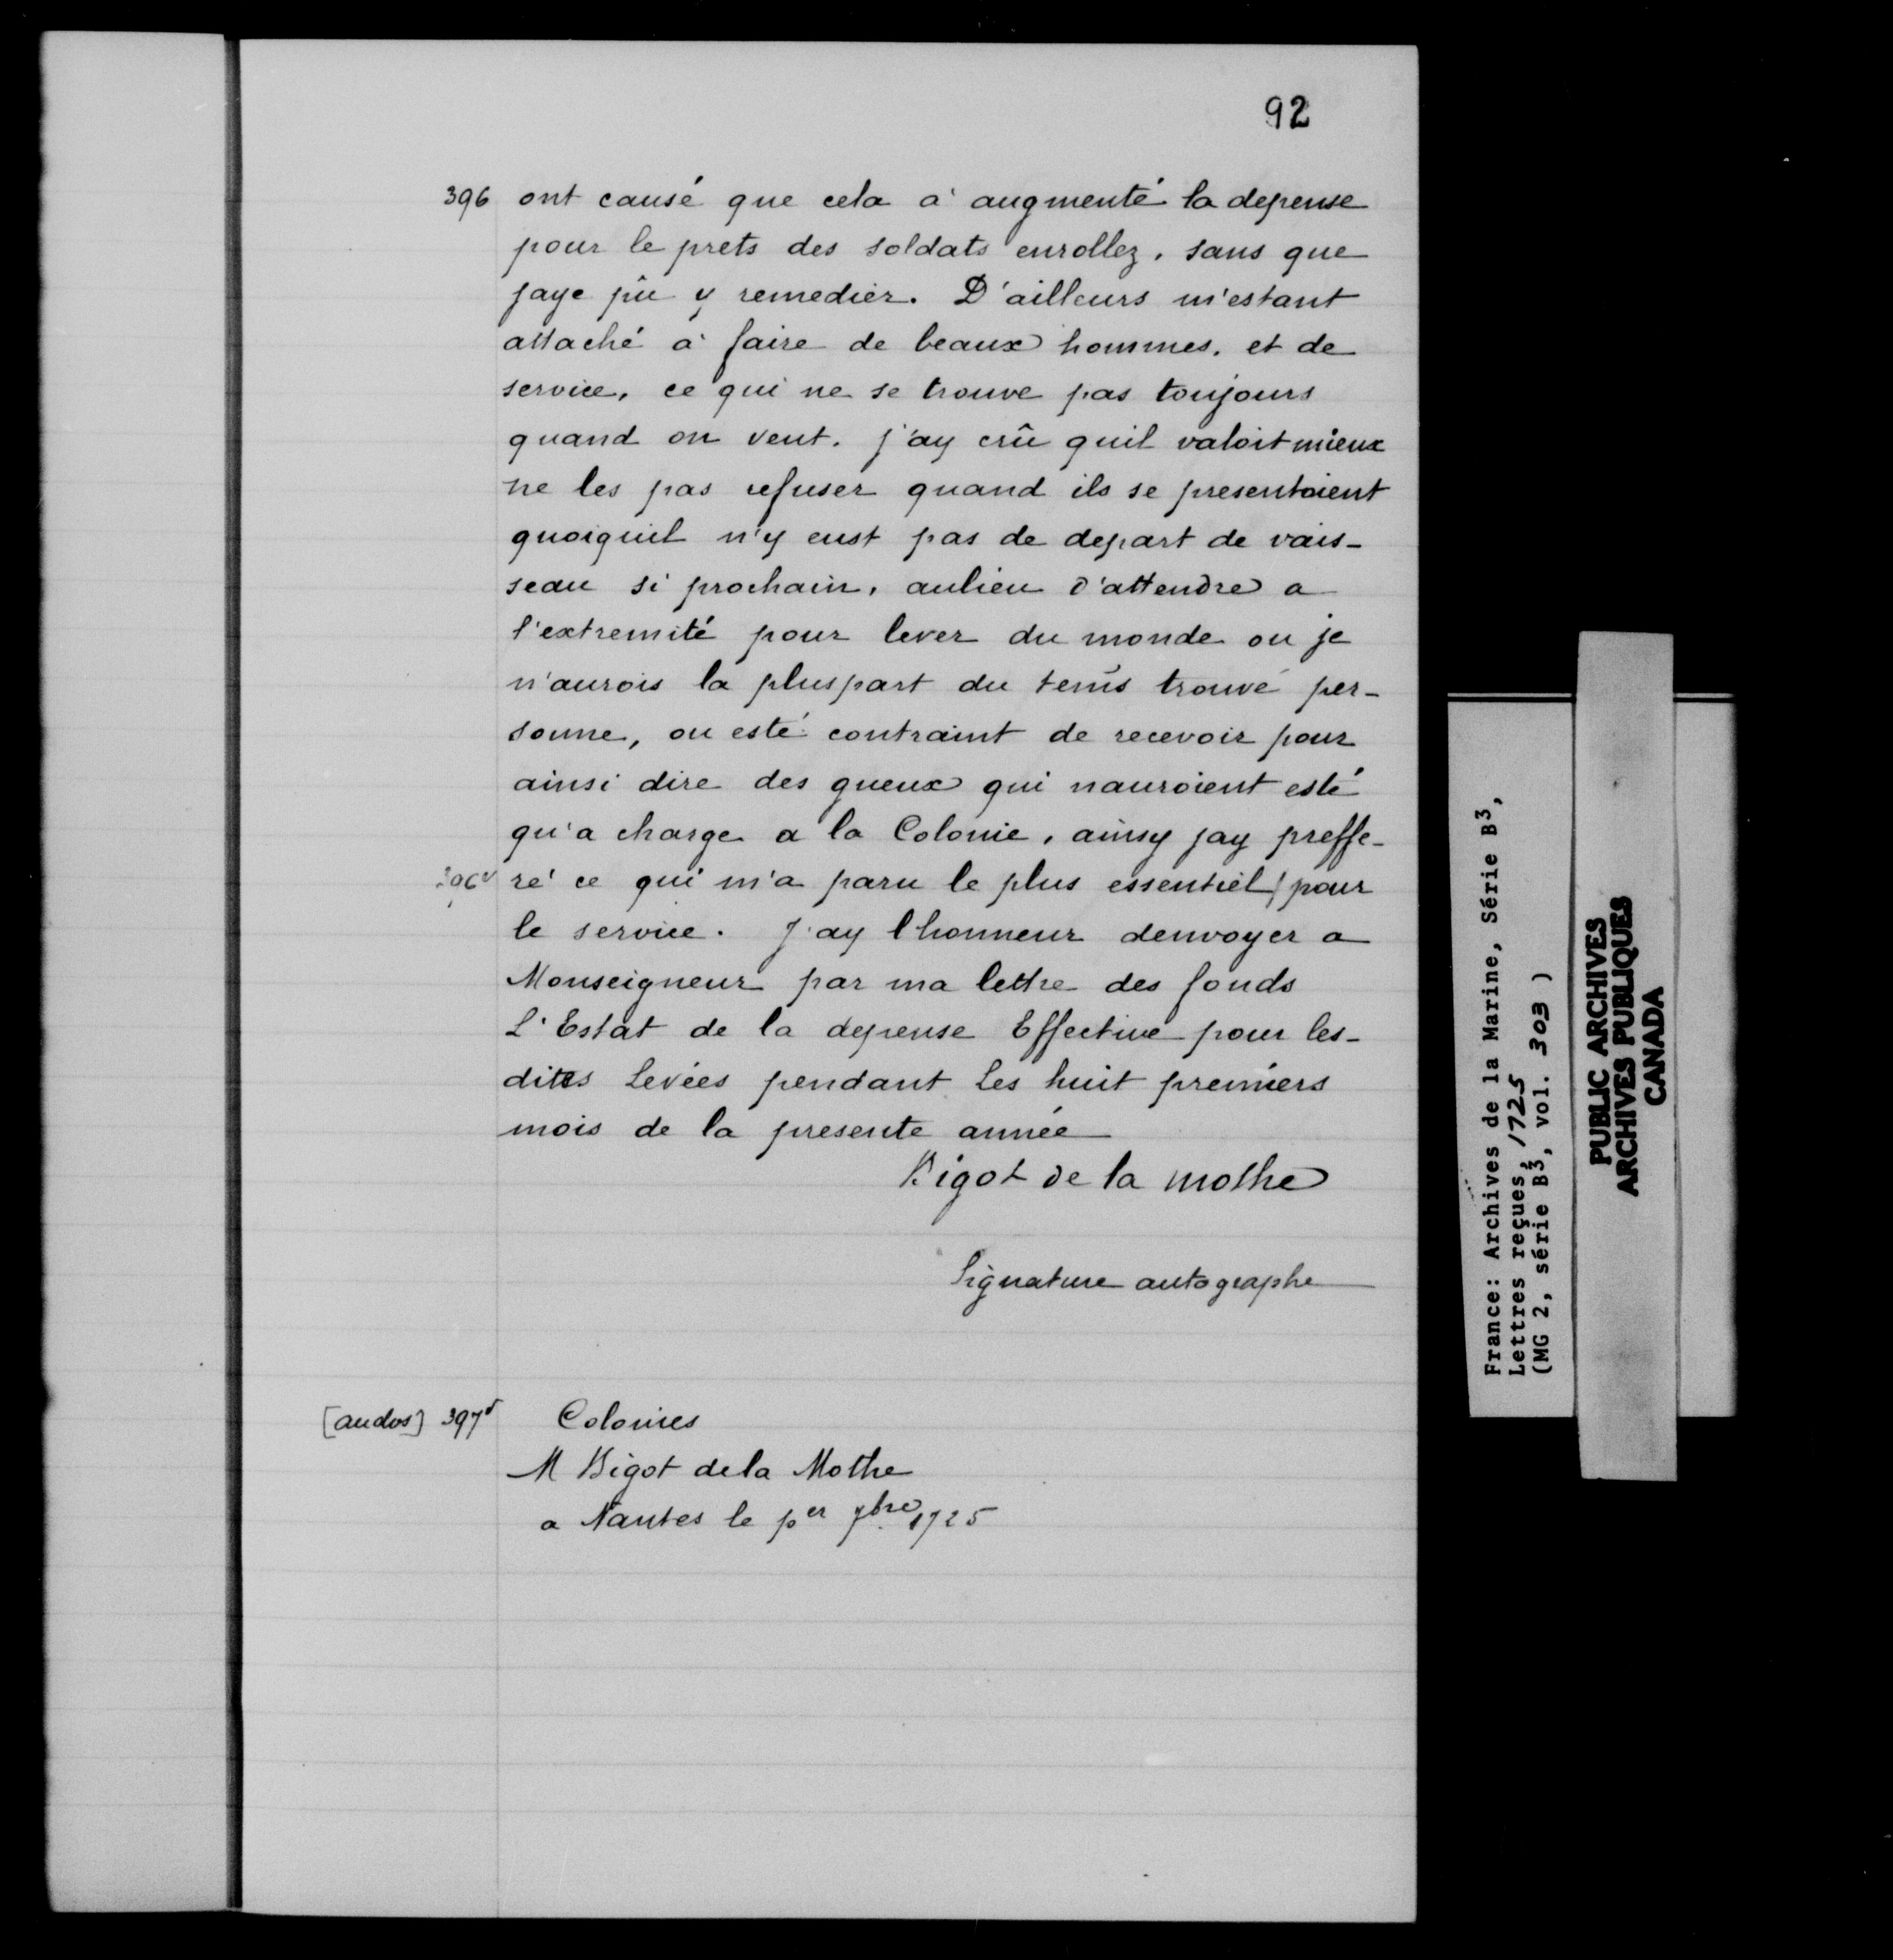 92
396 ont causé que cela à augmenté la depense
pour le prets des soldats enrollez, sans que
jaye pû y remedier. D'ailleurs m'estant
attaché à faire de beaux hommes, et de
service, ce qui ne se trouve pas toujours
quand on veut. j'ay crû quil valoit mieux
ne les pas refuser quand ils se presentoient
quoiquil n'y eust pas de depart de vais-
seau si prochain, aulieu d'attendre a
l'extremité pour lever du monde ou je
n'aurois la pluspart du tems trouvé per-
sonne, ou esté contraint de recevoir pour
ainsi dire des gueux qui nauroient esté
qu'a charge a la Colonie, ainsy jay preffe-
396v ré ce qui m'a paru le plus essentiel / pour
le service. J'ay l'honneur denvoyer a
Monseigneur par ma lettre des fonds
L'Estat de la depense Effective pour les-
dites Levées pendant Les huit premiers
mois de la presente année
Bigot de la mothe
Signature autographe
[au dos] 397v Colonies
M Bigot de la Mothe
a Nantes le per 7bre 1725
France: Archives de la Marine, Série B3,
Lettres reçues, 1725
(MG 2, série B3, vol. 303 )
PUBLIC ARCHIVES
ARCHIVES PUBLIQUES
CANADA